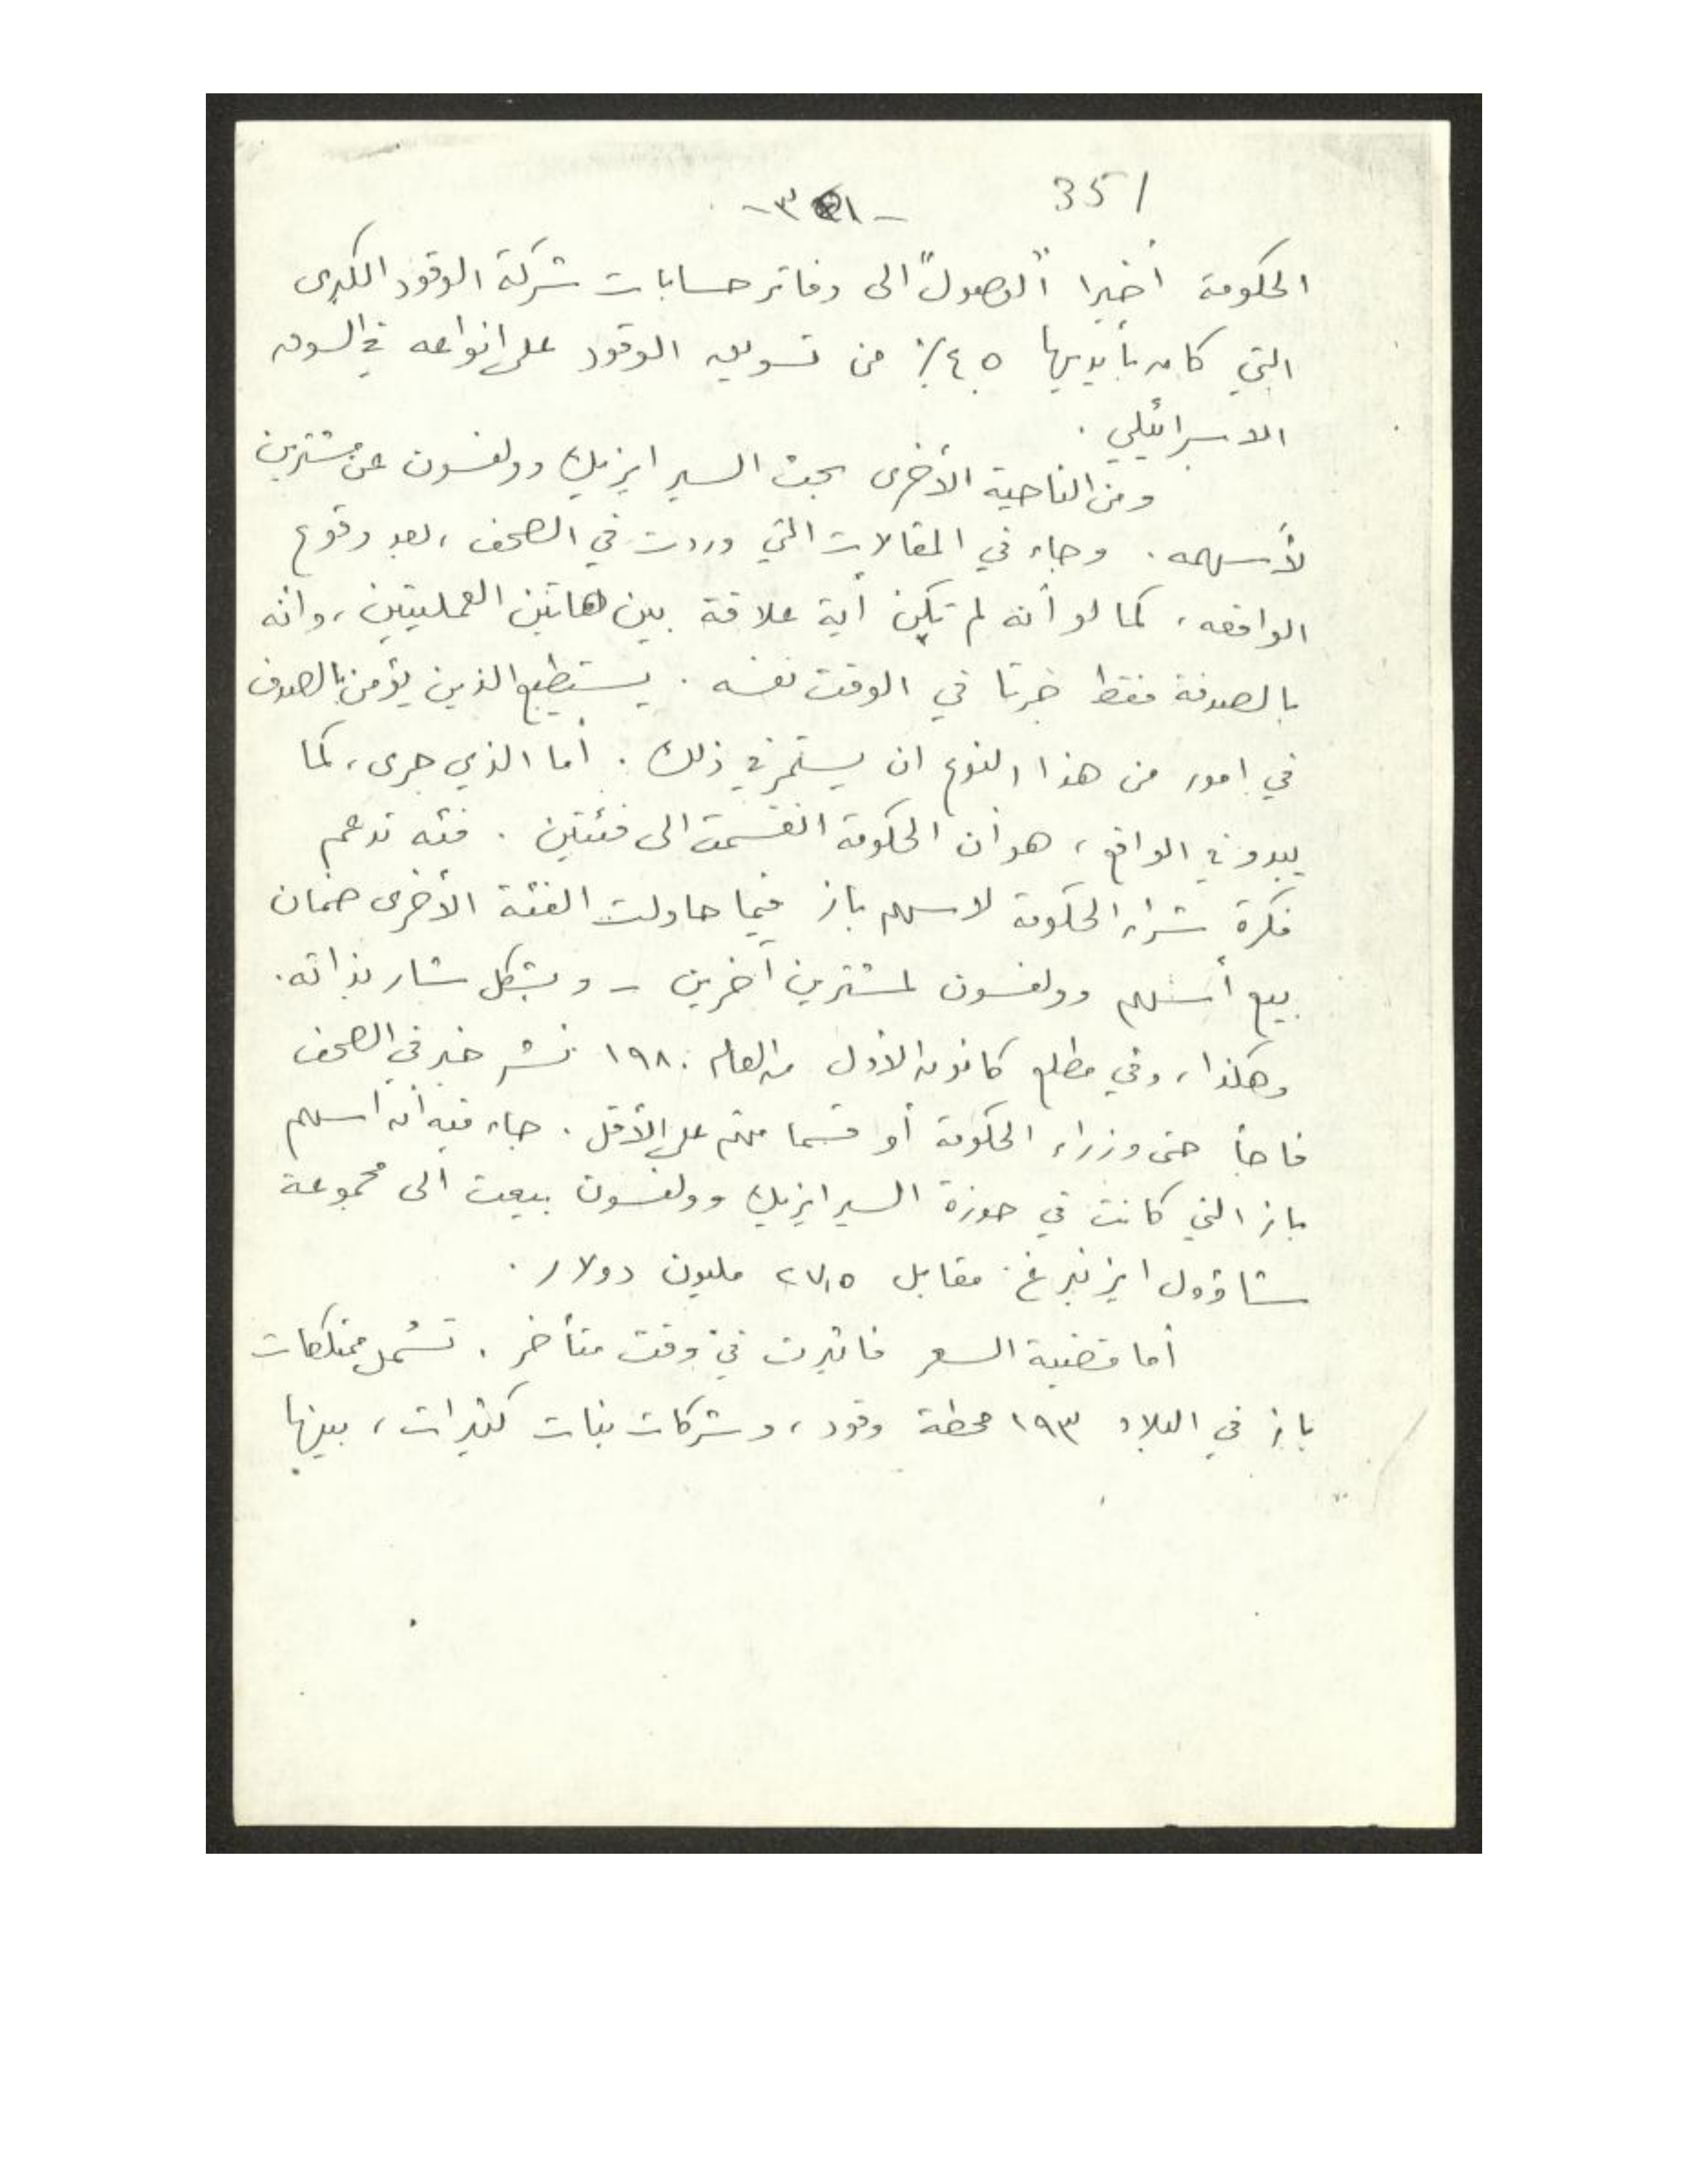 351
الحكومة أخيرا "الوصول" الى دفاتر حسابات شركة الوقود الكبرى
التي كان بأيديها ٤٥٪ من تسويق الوقود على انواعه في السوق
الاسرائيلي .
ومن الناحية الأخرى بحث السير ايزيك وولفسون عن مشترين
لأسهمه . وجاء في المقالات التي وردت في الصحف ، بعد وقوع
الواقعه ، كما لو أنه لم تكن أية علاقة بين هاتين العمليتين ، وانه
بالصدفة فقط جرتا في الوقت نفسه . يستطيع الذين يؤمن بالصدف
في امور من هذا النوع ان يستمر في ذلك . أما الذي جرى ، كما
يبدو في الواقع ، هو أن الحكومة انقسمت الى فئتين . فئه تدعم
فكرة شراء الحكومة لاسهم باز فيما حاولت الفئة الأخرى ضمان
بيع أسهم وولفسون لمشترين آخرين – وبشكل شار بذاته .
وهكذا ، وفي مطلع كانون الأول من العام ١٩٨٠ نشر خبر في الصحف
فاجأ حتى وزراء الحكومة أو قسما منهم على الأقل . جاء فيه أن أسهم
باز التي كانت في حوزة السير ايزيك وولفسون بيعت الى مجموعة
شاؤول ايزنبرغ مقابل ٢٧,٥ مليون دولار .
أما قضية السعر فاثيرت في وقت متأخر . تشمل ممتلكات
باز في البلاد ١٩٣ محطة وقود ، وشركات بنات كثيرات ، بينها